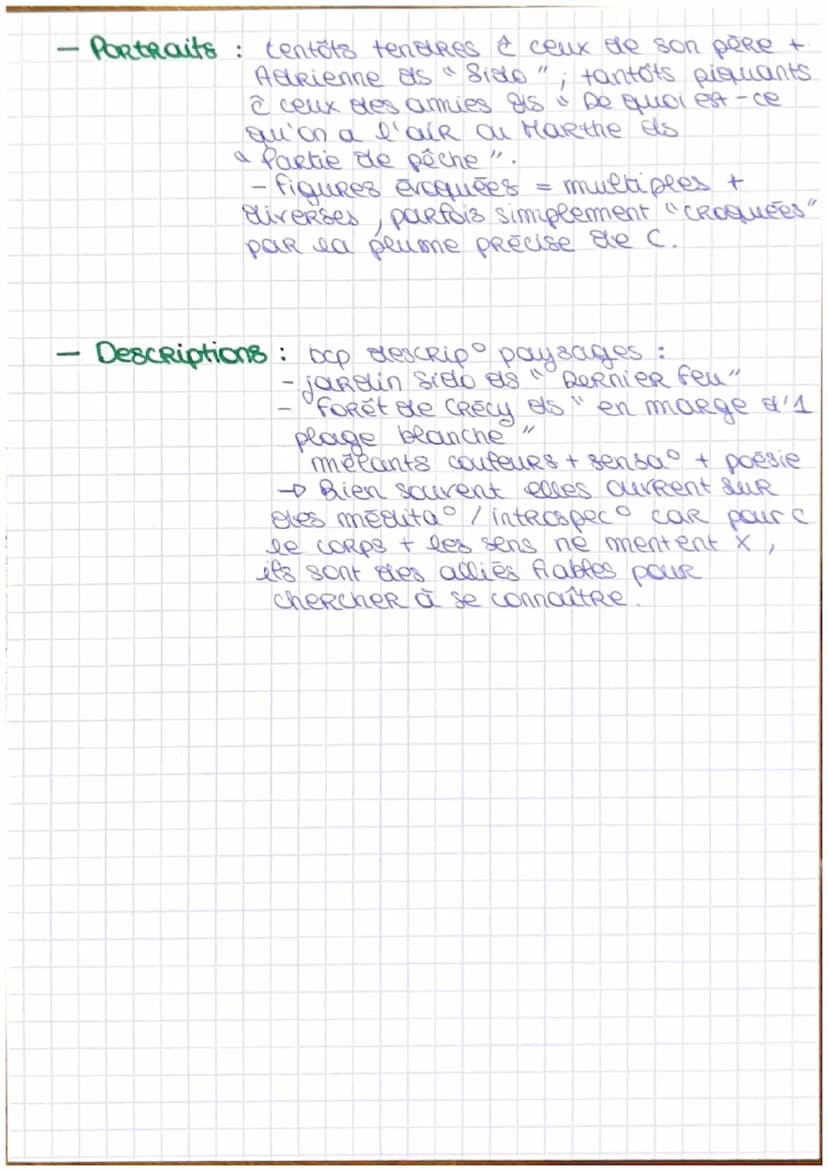 — Portraits : tentôts tendres ĉ ceux de son père +
Adrienne ds "Sido" ; tantôts piquants
ĉ ceux des amies ds "De quoi est-ce
qu'on a l'air ou Marthe ds
"Partie de pêche".
- figures évoquées = multiples +
diverses, parfois simplement "croquées"
par la plume précise de C.
— Descriptions : bcp descrip° paysages :
- jardin Sido ds "Dernier feu"
- forêt de Crécy ds "en marge d'1
plage blanche"
mêlants couleurs + sensa° + poésie
→ Bien souvent elles ouvrent sur
des médita° / introspec° car pour C
le corps + les sens ne mentent x,
ils sont des alliés fiables pour
chercher à se connaître.